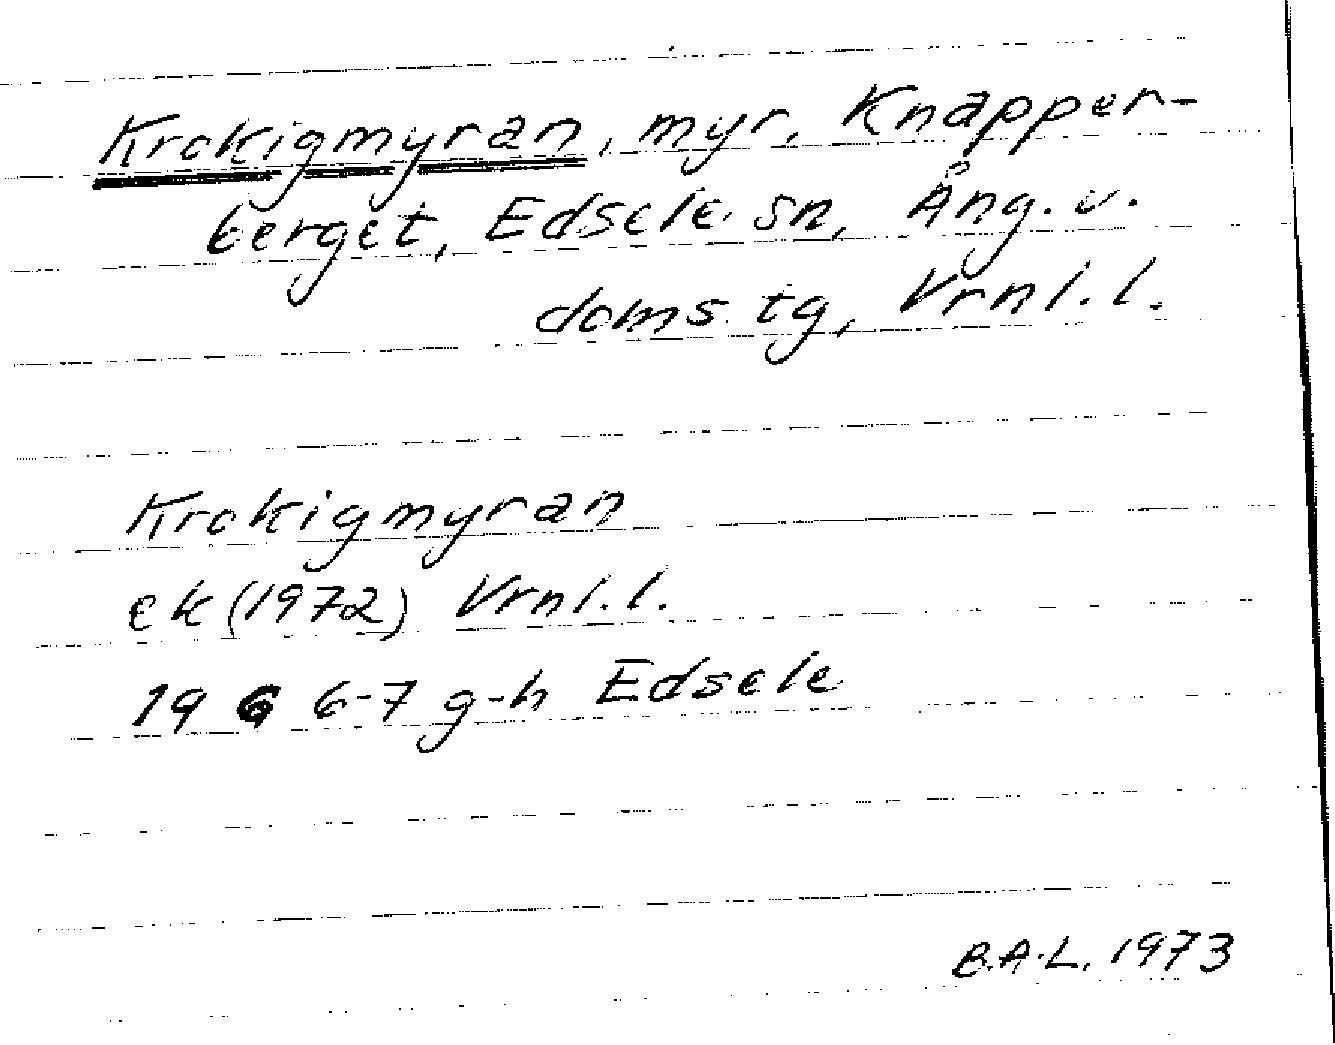 Krokigmyran, myr, Knapper-
berget, Edsele sn, Ång. v.
doms. tg, Vrnl. l.
Krokigmyran
ek (1972) Vrnl. l.
19 G 6-7 g-h Edsele
B.A.L. 1973